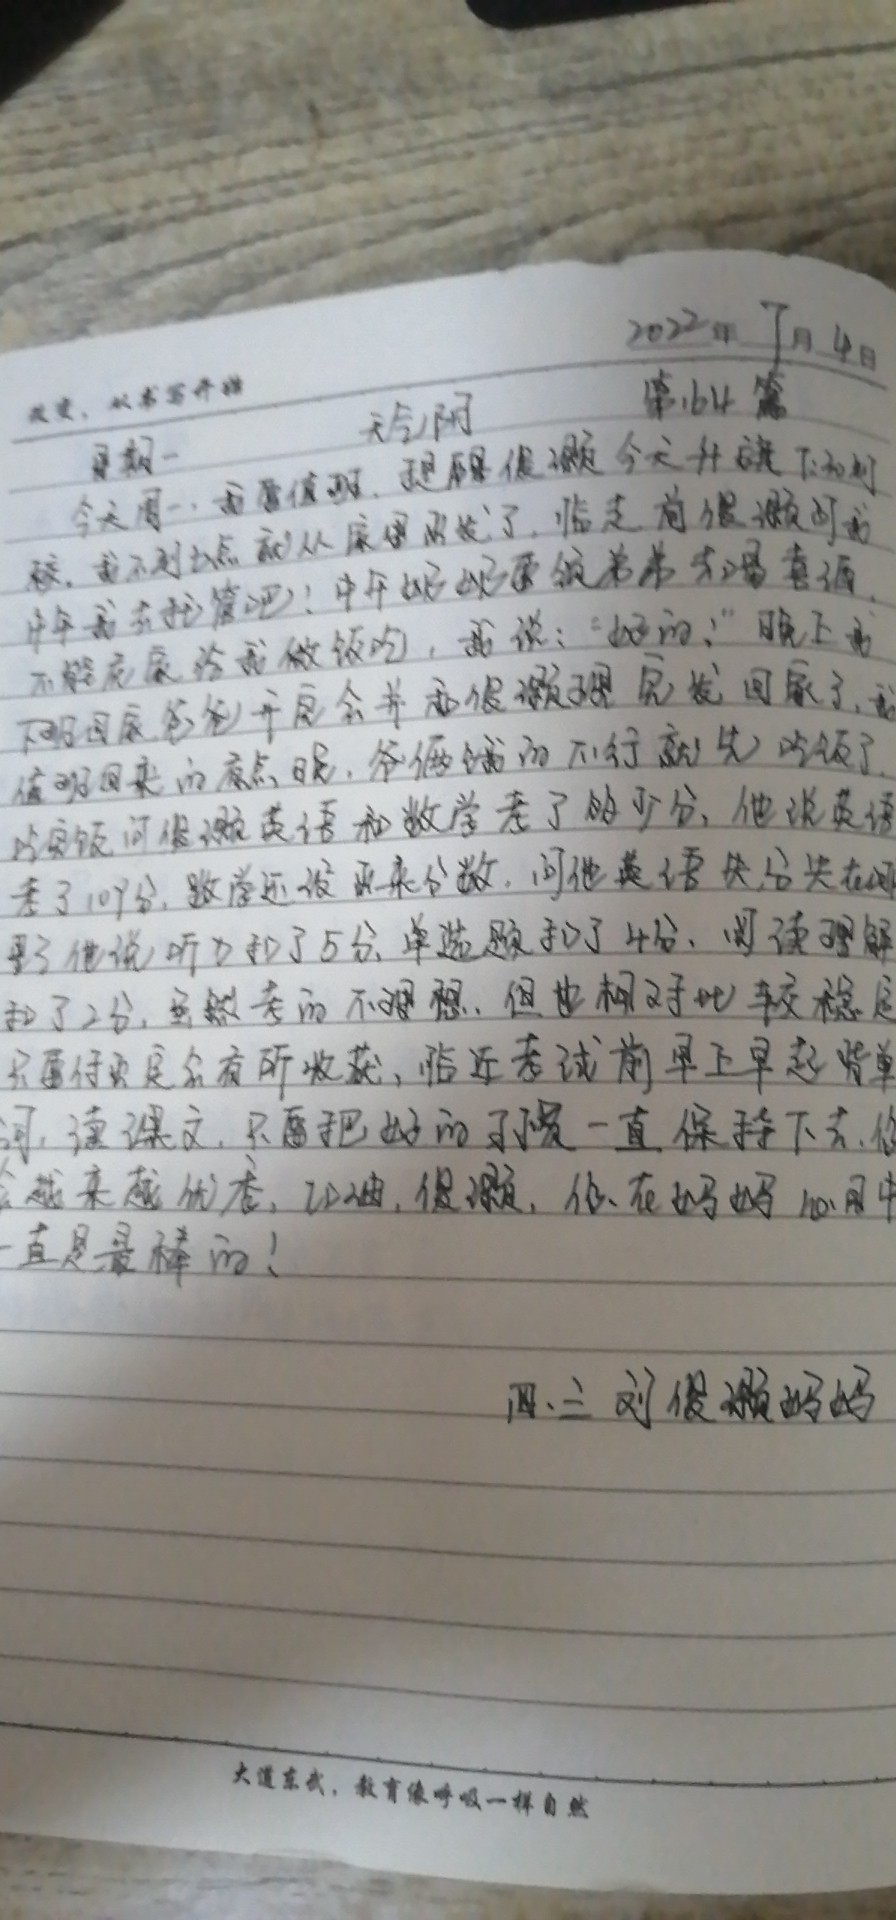 2022年 7月 4日
改变，从书写开始
星期一 晴/阴 第164篇
今天周一，我要值班，提醒俊灏今天升旗下初到
校，我不到七点就从家里出发了，临走前俊灏问我
中午我去托管吧！中午奶奶要给弟弟去喝喜酒，
不能在家给我做饭吃，我说："好的！"晚上我
下班回家爸爸开完会并和俊灏理完发回家了，我
值班回来的有点晚，爷俩饿的不行就先吃饭了，
吃完饭问俊灏英语和数学考了多少分，他说英语
考了109分，数学还没出来分数，问他英语失分失在哪
里了他说听力扣了5分，单选题扣了4分，阅读理解
扣了2分，虽然考的不理想，但也相对于比较稳定
只要付出定会有所收获，临近考试前早上早起背单
词，读课文，只要把好的习惯一直保持下去，你
会越来越优秀，加油，俊灏，你在妈妈心目中
一直是最棒的！
四、三 刘俊灏妈妈
大道东武，教育像呼吸一样自然